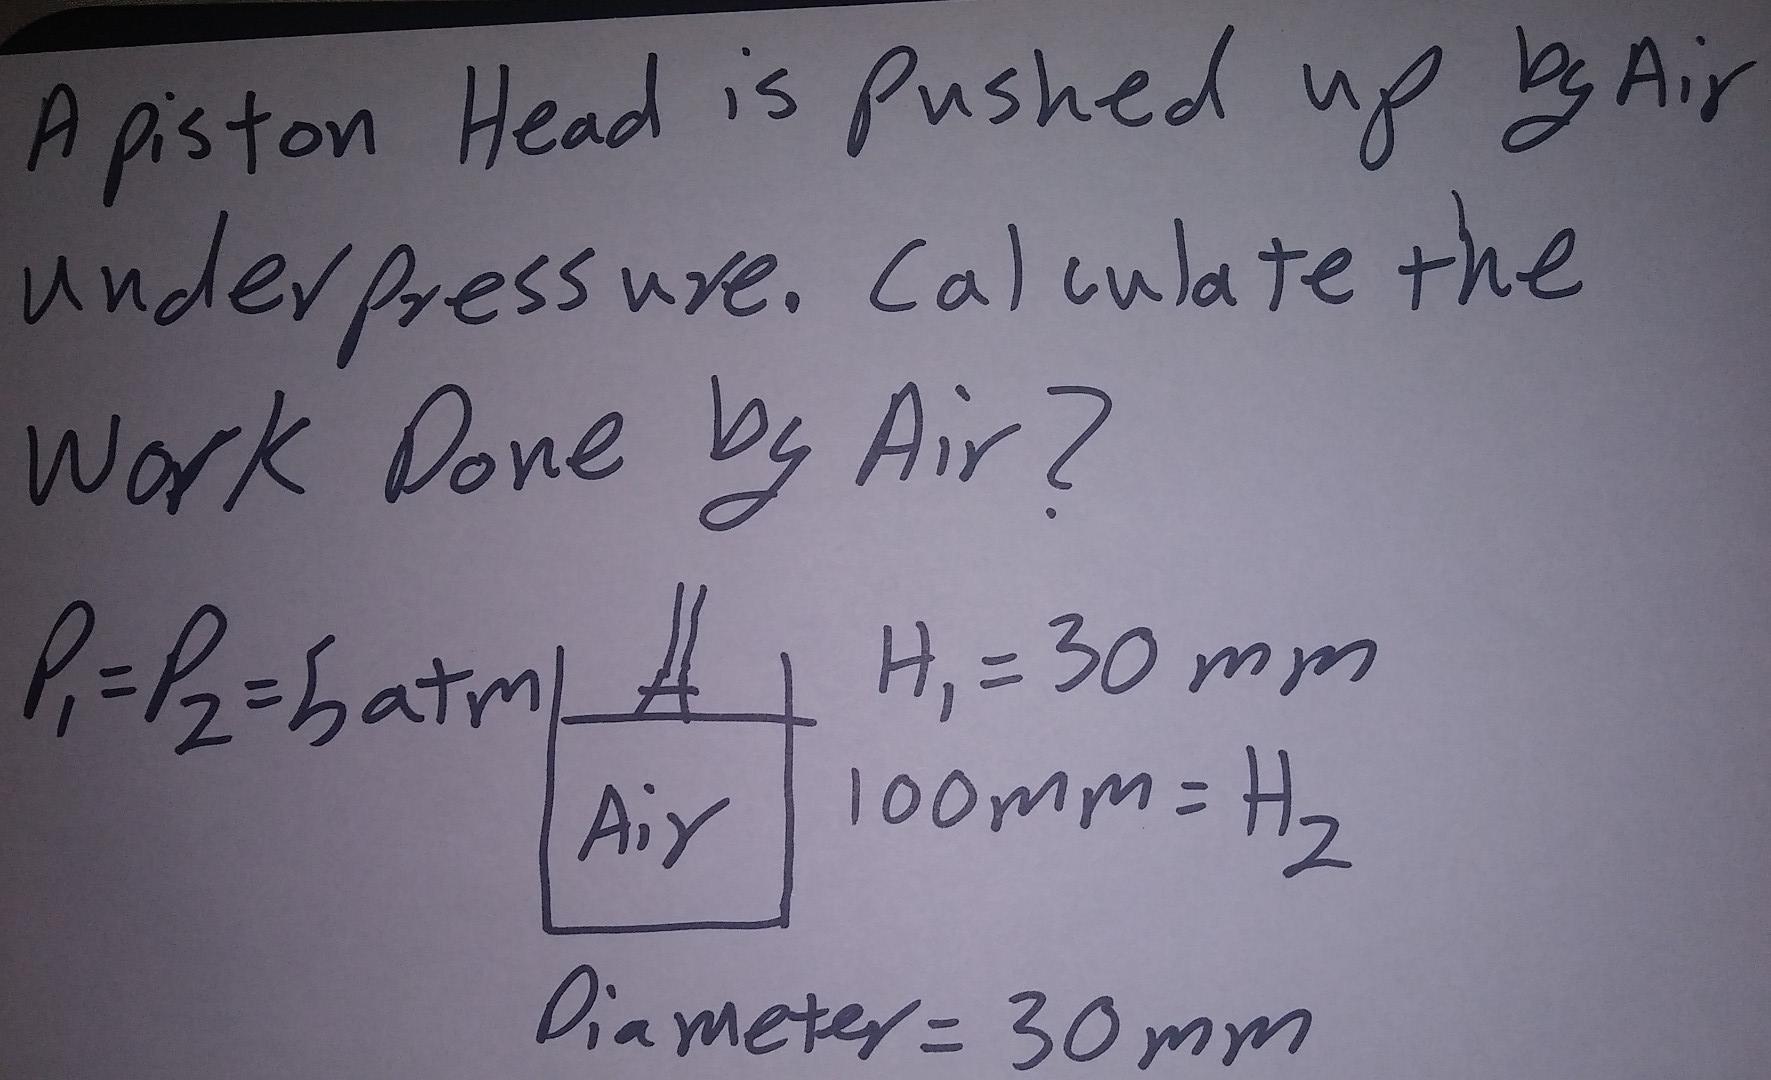 A piston Head is pushed up by Air
under pressure. Calculate the
Work Done by Air?
P₁=P₂=5atm
H₁=30 mm
100mm=H₂
Air
Diameter=30mm